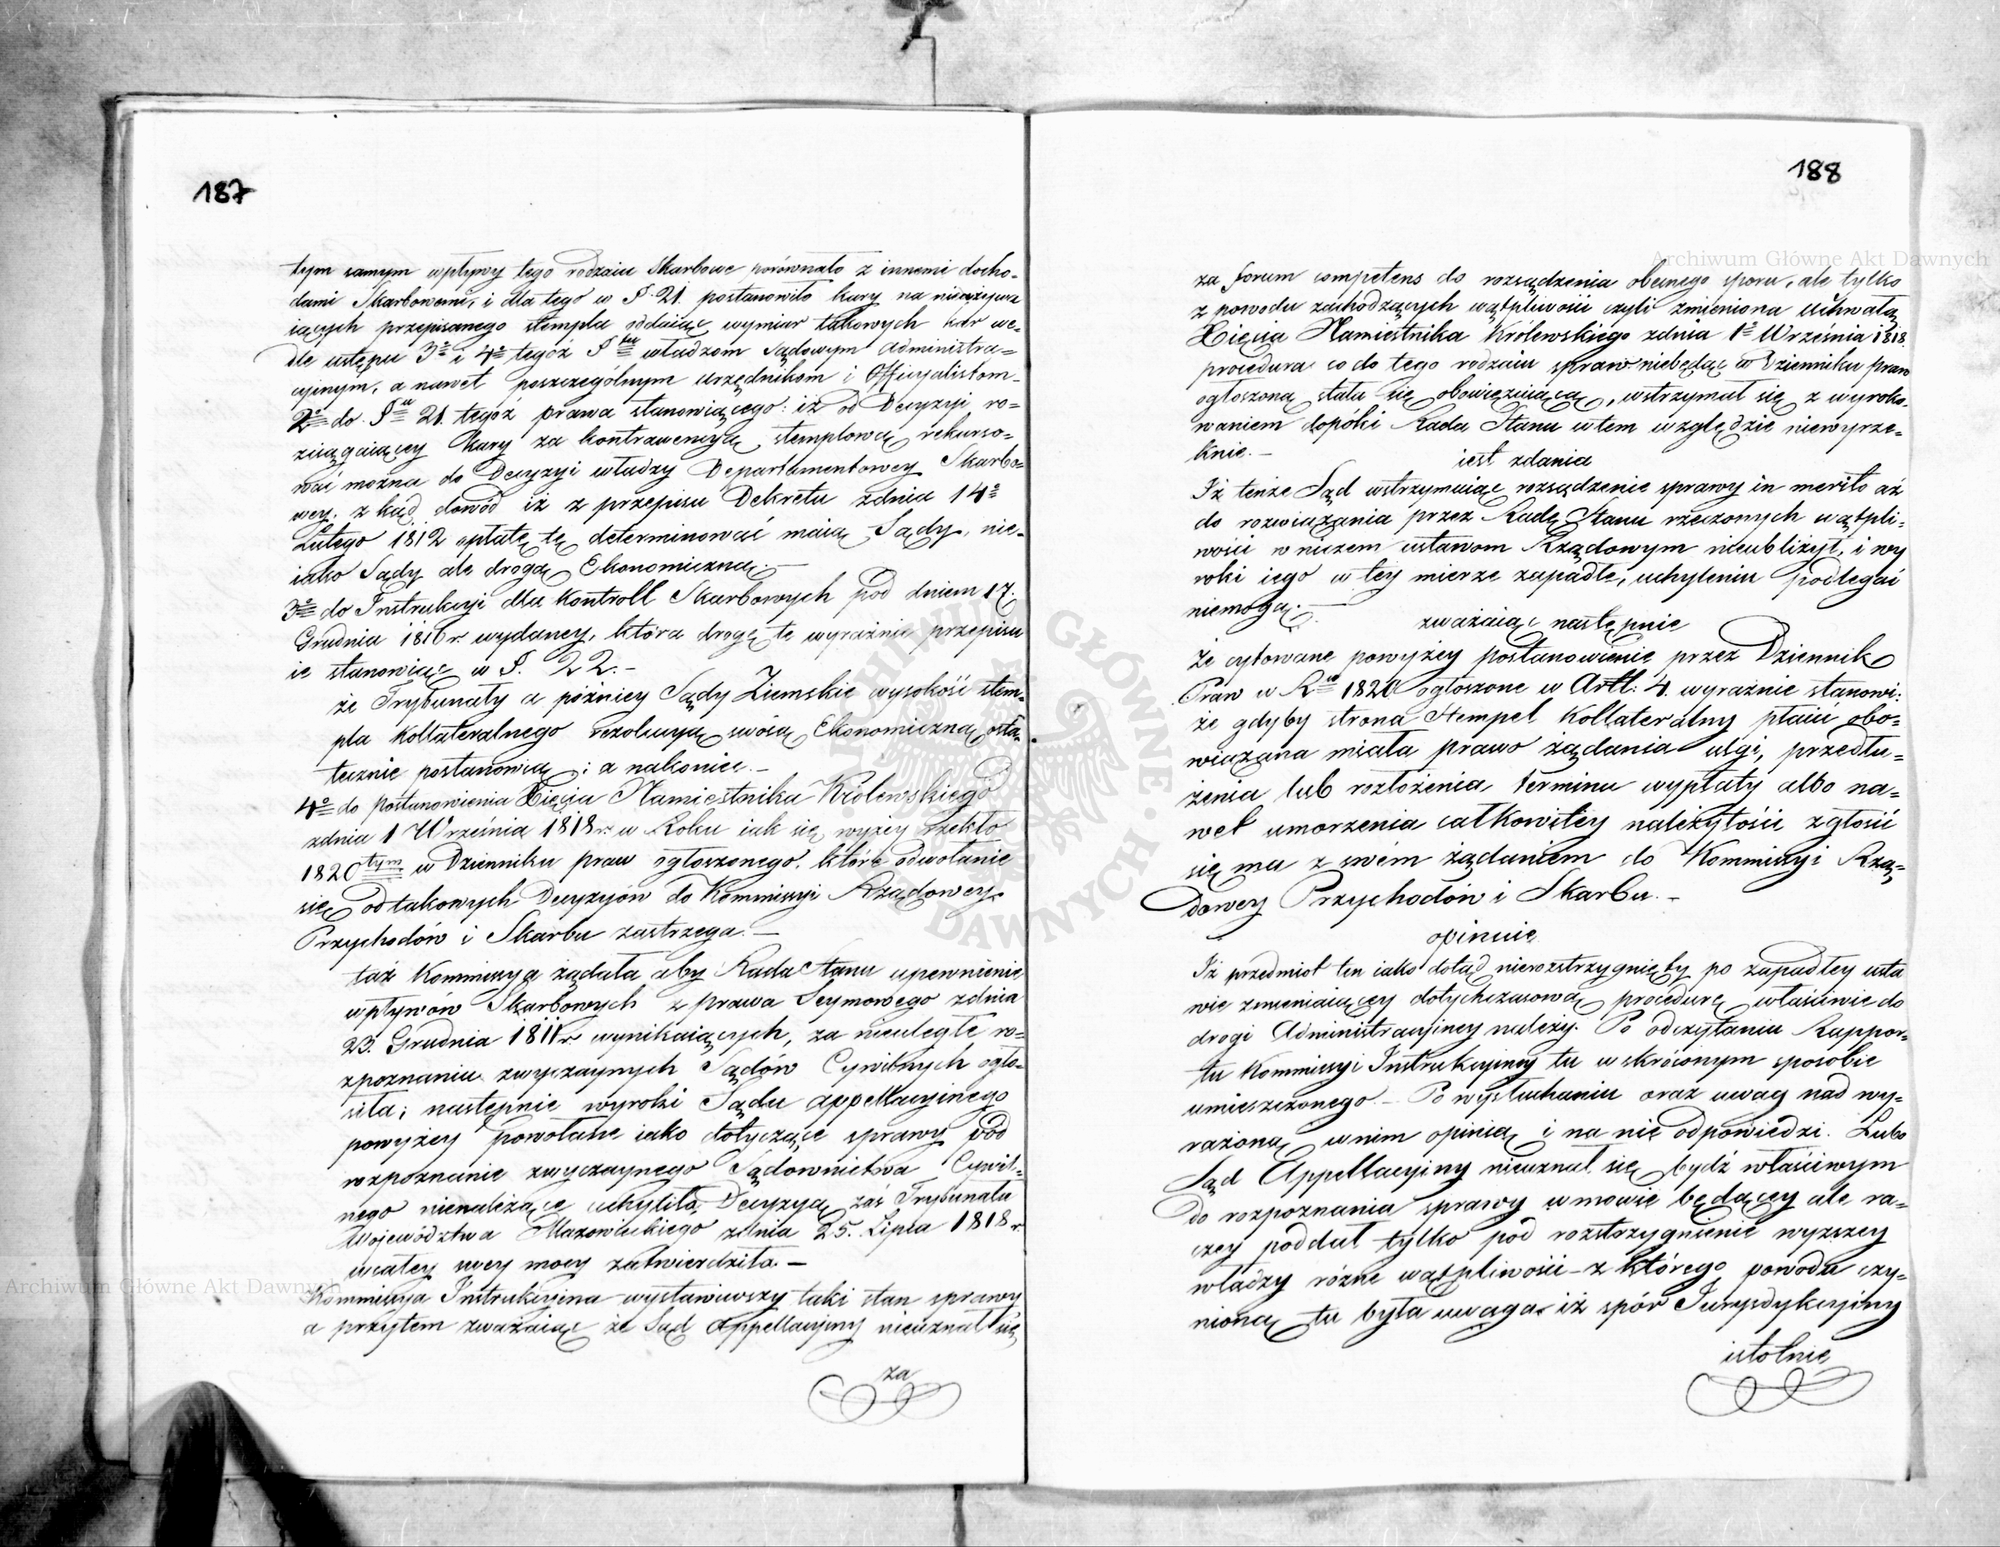 187
tym samym wpływy tego rodzaiu Skarbowe porównało z innemi docho-
dami Skarbowemi, i dla tego w §. 21. postanowiło kary na nieużywa
iących przepisanego stempla oddaiąc wymiar takowych kar we-
dle ustępu 3º i 4º tegoż §fu władzom Sądowym Administra-
cyinym, a nawet poszczególnym urzędnikom i Officyalistom.
2º do §u 21. tegoż prawa stanowiącego: iż od Decyzyi ro-
zciągaiącey kary za kontrawencyą stemplową rekurso-
wać można do Decyzyi władzy Departamentowey Skarbo-
wey. z kąd dowód iż z przepisu Dekretu zdnia 14º
Lutego 1812 opłatę tę determinować maią Sądy, nie-
iako Sądy ale drogą Ekonomiczną.-
3º do Instrukcyi dla Kontroll Skarbowych pod dniem 17.
Grudnia 1816 r. wydaney, która drogę tę wyraźnie przepisu
ie stanowiąc w §. 22.-
że Trybunały a pòźniey Sądy Ziemskie wysokość stem-
pla Kollateralnego rezolucyą swoią Ekonomiczną osta-
tecznie postanowią; a nakoniec.-
4º do postanowienia Xięcia Namiestnika Królewskiego
zdnia 1 Września 1818 r. w Roku iak się wyżey rzekło
1820tym w Dzienniku praw ogłoszonego, które odwołanie
się od takowych Decyzyów do Kommissyi Rządowey
Przychodów i Skarbu zastrzega.-
taż Kommissya żądała aby Rada Stanu upewnienie
wpływów Skarbowych z prawa Seymowego zdnia
23. Grudnia 1811 r. wynikaiących, za nieuległe ro-
zpoznaniu zwyczaynych Sądów Cywilnych ogło-
siła; następnie wyroki Sądu Appellacyinego
powyżey powołane iako dotyczące sprawy pod
rozpoznanie zwyczaynego Sądownictwa Cywil-
nego nienależące uchyliła, Decyzyą zaś Trybunału
Województwa Mazowieckiego zdnia 25. Lipca 1818 r.
wcałey swey mocy zatwierdziła.-
Kommissya Instrukcyina wystawiwszy taki stan sprawy
a przytem zważaiąc że Sąd Appellacyiny nieuznał się
za
188
za forum competens do rozsądzenia obecnego sporu, ale tylko
z powodu zachodzących wątpliwości czyli zmieniona Uchwałą
Xięcia Namiestnika Królewskiego zdnia 1º Września 1818
procedura co do tego rodzaiu spraw niebędąc w Dzienniku praw
ogłoszoną stała się obowięzuiącą, wstrzymał się z wyroko-
waniem dopóki Rada Stanu wtem względzie niewyrze-
knie.-
iest zdania
Iż tenże Sąd wstrzymuiąc rozsądzenie sprawy in merito aż
do rozwiązania przez Radę Stanu rzeczonych wątpli-
wości w niczem ustawom Rządowym nieubliżył, i wy
roki iego w tey mierze zapadłe, uchyleniu podlegać
niemogą.-
zważaiąc następnie
że cytowane powyżey postanowienie przez Dziennik
Praw w Rku 1820 ogłoszone w Artt: 4. wyraźnie stanowi:
że gdyby strona Stempel Kollateralny płacić obo-
wiązana miała prawo żądania ulgi, przedłu-
żenia lub rozłożenia terminu wypłaty albo na-
wet umorzenia całkowitey należytości zgłosić
się ma z swém żądaniem do Kommissyi Rzą-
dowey Przychodów i Skarbu.-
opiniuie
Iż przedmiot ten iako dotąd nierozstrzygnięty po zapadłey usta
wie zmieniaiącey dotychczasową procedurę właściwie do
drogi Administracyiney należy. Po odczytaniu Rappor-
tu Kommissyi Instrukcyiney tu w skróconym sposobie
umieszczonego.- Po wysłuchaniu oraz uwag nad wy-
rażoną wnim opinią i na nie odpowiedzi. Lubo
Sąd Appellacyiny nieuznał się bydź właściwym
do rozpoznania sprawy wmowie będącey ale ra-
czey poddał tylko pod rozstrzygnienie wyższey
władzy różne wątpliwości z którego powodu czy-
nioną tu była uwaga iż spór Jurysdykcyiny
istotnie